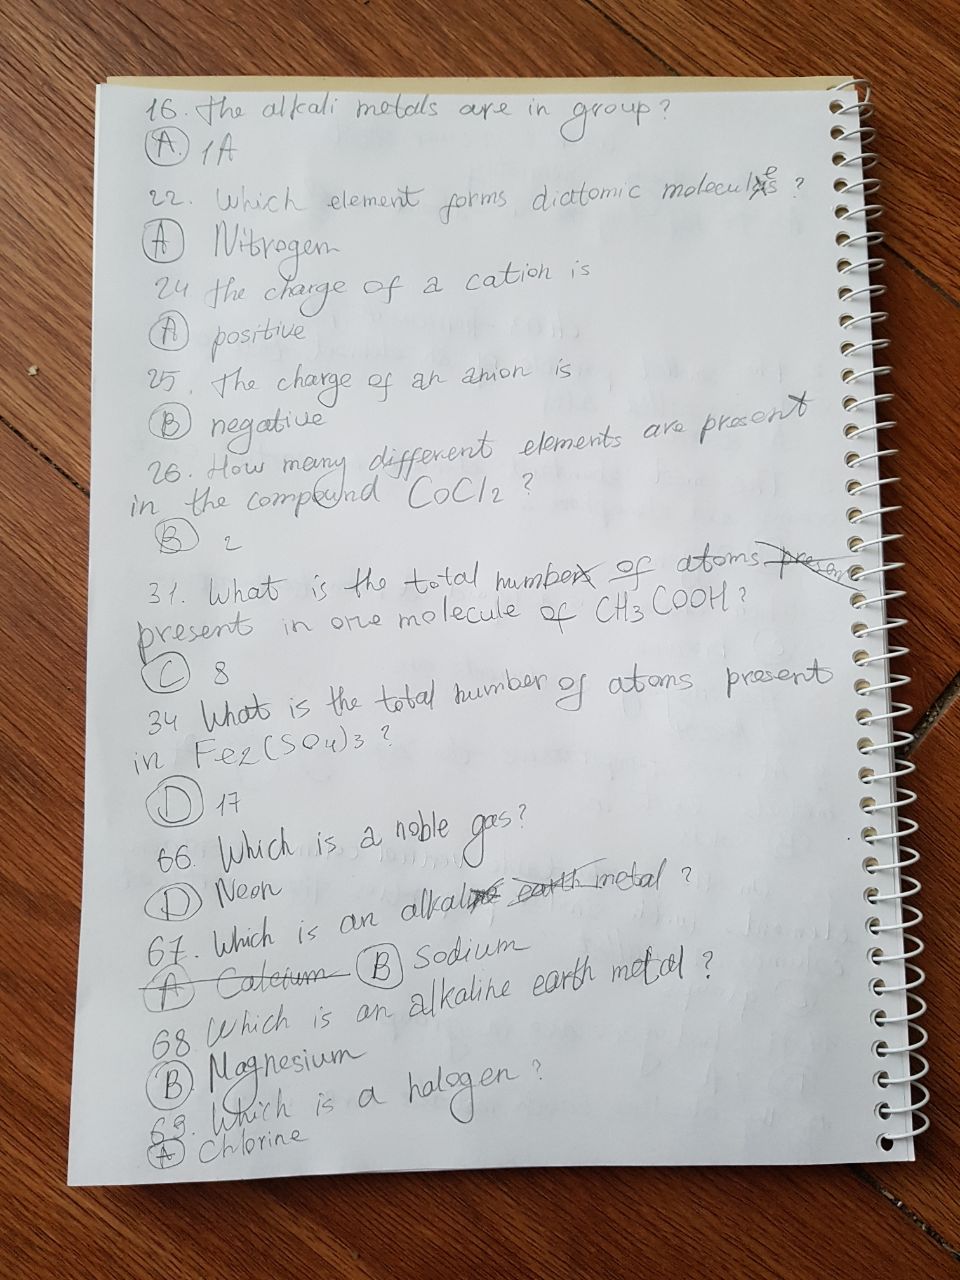 16. The alkali metals are in group?
A. 1A
22. Which element forms diatomic molecules?
A Nitrogen
24 the charge of a cation is
A positive
25. The charge of an anion is
B negative
26. How many different elements are present
in the compound CoCl2?
B 2
31. What is the total number of atoms presen
present in one molecule of CH3COOH?
C 8
34 What is the total number of atoms present
in Fe2(SO4)3?
D 17
66. Which is a noble gas?
D Neon
67. Which is an alkaline earth metal?
A Calcium B Sodium
68 Which is an alkaline earth metal?
B Magnesium
69. Which is a halogen?
A Chlorine